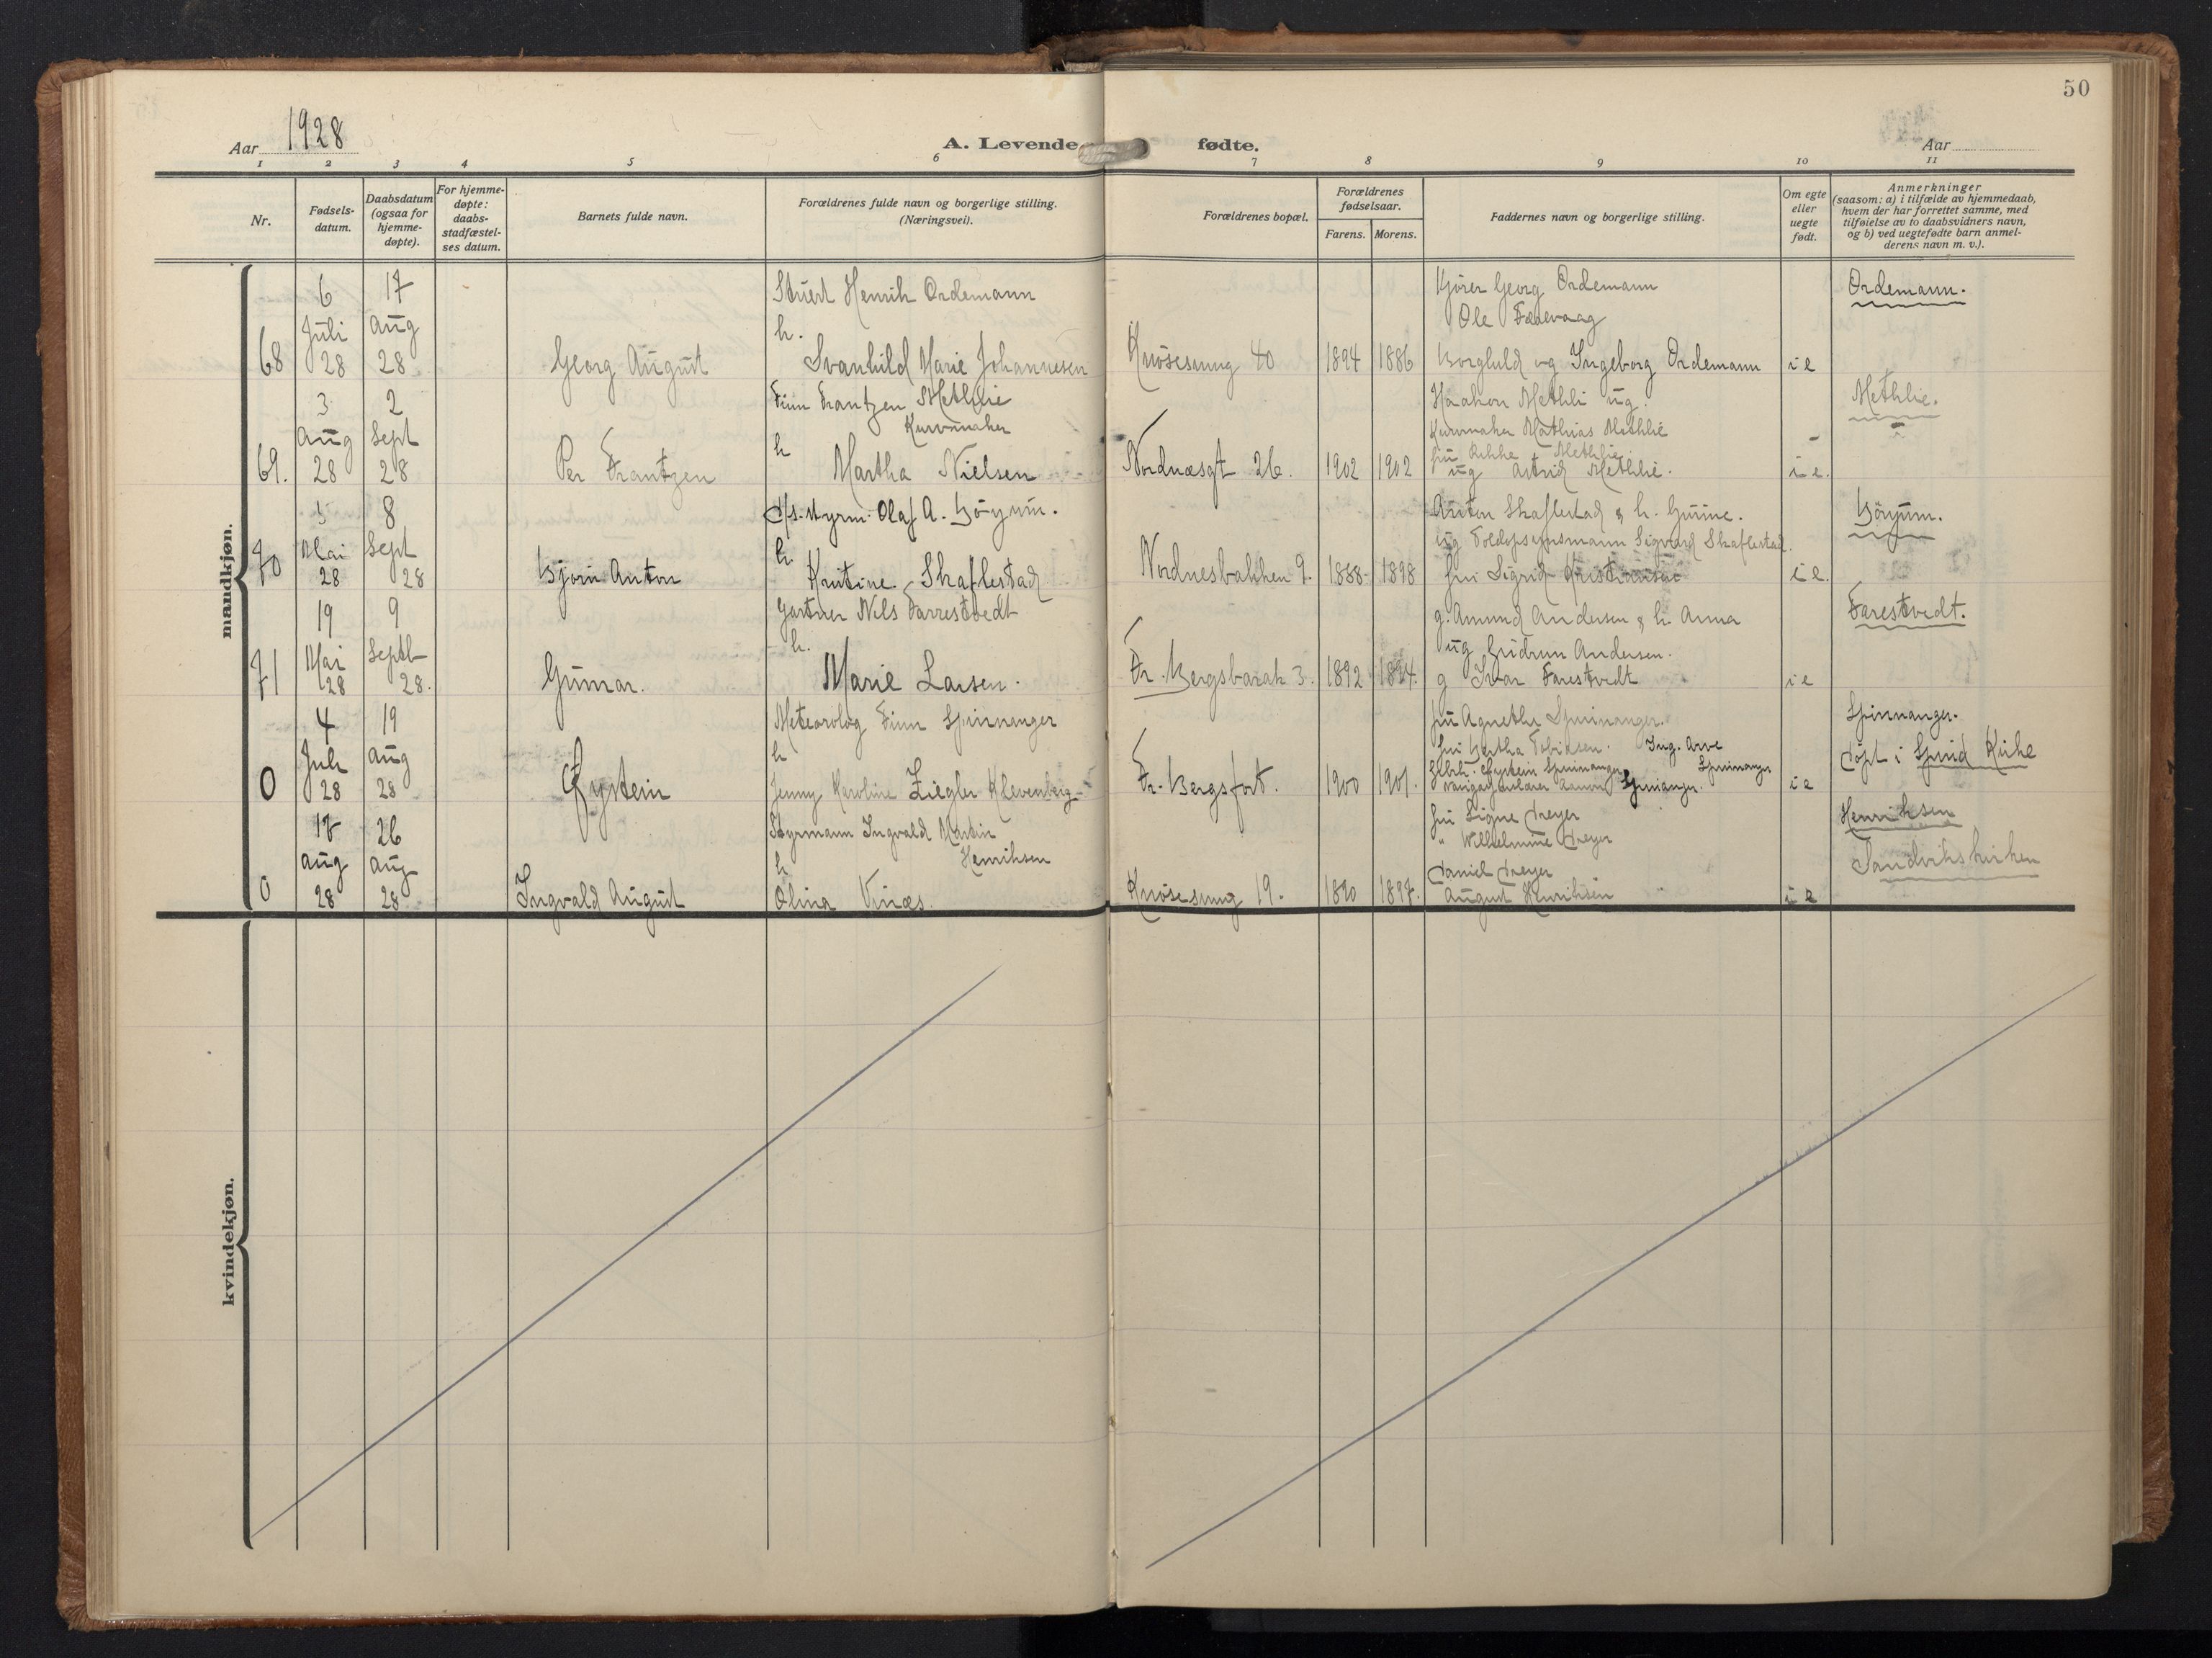 50
Aar 1928
A. Levende
fødte.
Aar
1 2 3 4 5 6 7 8 9 10 11
Nr.
Fødsels-
datum.
Daabsdatum
(ogsaa for
hjemme-
døpte).
For hjemme-
døpte:
daabs-
stadfæstel-
ses datum.
Barnets fulde navn.
Forældrenes fulde navn og borgerlige stilling.
(Næringsvei).
Forældrenes bopæl.
Forældrenes
fødselsaar.
Farens. Morens.
Faddernes navn og borgerlige stilling.
Om egte
eller
uegte
født.
Anmerkninger
(saasom: a) i tilfælde av hjemmedaab,
hvem der har forrettet samme, med
tilføielse av to daabsvidners navn,
og b) ved uegtefødte barn anmel-
derens navn m. v.).
mandkjøn.
68
6
Juli
28
17
Aug
28
Georg August
Henrik Ordemann
h.
Svanhild Marie Johannesen
Knøsesmug 40
1894 1886
Kjører Georg Ordemann
Ole
Borghild og Ingeborg Ordemann
i e
Ordemann.
69.
3
Aug
28
2
Sept
28
Per Frantzen
Finn Frantzen Methlie
Kurvmaker
h
Martha Nielsen
Nordnæsgt 26.
1902 1902
Haakon Methli ug.
Kurvmaker Mathias Methlie
fru Rikke Methlie
ug Astrid Methlie.
i e.
Methlie.
70
Mai
28
8
Sept
28
Bjørn Anton
D/s. styrm. Olaf A. Böyum.
h.
Kristine Skaflestad
Nordnesbakken 9.
1888 1898
Anton Skaflestad & h. Gurine.
ug Toldopsynsmann Sigvard Skaflestad.
fru Sigrid Kristiansen
i e.
Böyum.
71
19
Mai
28
9
Septb
28.
Gunnar.
Gartner Nils Farrestvedt
h.
Marie Larsen.
Fr. Bergsbarak 3.
1892 1894.
g. Amund Andersen & h. Anna
ug Gudrun Andersen.
g Ivar Farestvedt
i e
Farestvedt.
0
4
Juli
28
19
Aug
28
Øystein
Meteorolog Finn Spinnanger
h
Jenny Karoline Ziegler Klevenberg
Fr. Bergsfort.
1900 1901.
fru Agnethe Spinnanger.
fru Bertha Tobiasen. Ing. Arve
Spinnanger
Øystein Spinnanger
Spinnanger.
i e
Spinnanger.
døpt i Kirke
0
17
Aug
28
26
Aug
28
Ingvald August
Styrmann Ingvald Martin
Henriksen
h
Olina Vinæs.
Knøsesmug 19.
1890 1897.
fru Signe Dreyer
" Wilhelmine Dreyer
Daniel Dreyer
August Henriksen
i e
Henriksen
Sandvikskirken
kvindekjøn.